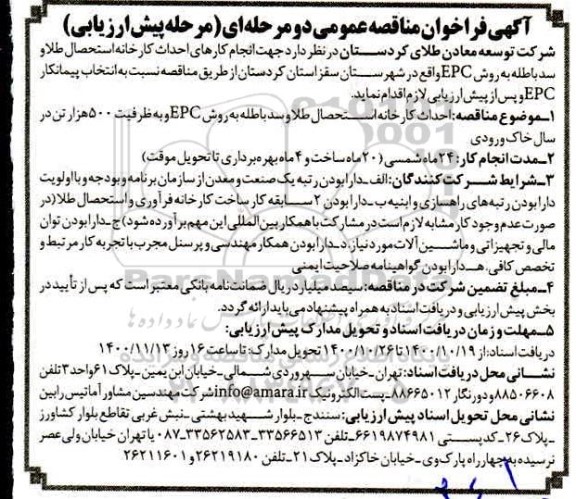 آگهی فراخوان مناقصه عمومی دو مرحله‌ای (مرحله پیش ارزیابی)
شرکت توسعه معادن طلای کردستان در نظر دارد جهت انجام کارهای احداث کارخانه استحصال طلا و
سد باطله به روش EPC واقع در شهرستان سقز استان کردستان از طریق مناقصه نسبت به انتخاب پیمانکار
EPC و پس از پیش ارزیابی لازم اقدام نماید.
۱ـ موضوع مناقصه: احداث کارخانه استحصال طلا و سد باطله به روش EPC و به ظرفیت ۵۰۰ هزار تن در
سال خاک ورودی
۲ـ مدت انجام کار: ۲۴ ماه شمسی (۲۰ ماه ساخت و ۴ ماه بهره برداری تا تحویل موقت)
۳ـ شرایط شرکت کنندگان: الف ـ دارا بودن رتبه یک صنعت و معدن از سازمان برنامه و بودجه و با اولویت
دارا بودن رتبه های راهسازی و ابنیه ب ـ دارا بودن ۲ سابقه کار ساخت کارخانه فرآوری و استحصال طلا (در
صورت عدم وجود کار مشابه لازم است در مشارکت با همکار بین المللی این مهم برآورده شود) ج ـ دارا بودن توان
مالی و تجهیزاتی و ماشین آلات مورد نیاز. د ـ دارا بودن همکار مهندسی و پرسنل مجرب با تجربه کار مرتبط و
تخصص کافی. هـ ـ دارا بودن گواهینامه صلاحیت ایمنی
۴ـ مبلغ تضمین شرکت در مناقصه: سیصد میلیارد ریال ضمانت نامه بانکی معتبر است که پس از تأیید در
بخش پیش ارزیابی و دریافت اسناد به همراه پیشنهاد می باید ارائه گردد.
۵ـ مهلت و زمان دریافت اسناد و تحویل مدارک پیش ارزیابی:
دریافت اسناد: از ۱۴۰۰/۱۰/۱۹ تا ۱۴۰۰/۱۰/۲۶ تحویل مدارک: تا ساعت ۱۶ روز ۱۴۰۰/۱۱/۱۳
نشانی محل دریافت اسناد: تهران ـ خیابان سهروردی شمالی ـ خیابان ابن یمین ـ پلاک ۶۱ واحد ۳ تلفن
۸۸۵۰۶۶۰۸ و دورنگار ۸۸۶۶۵۰۱۲ ـ پست الکترونیک info@amara.ir شرکت مهندسین مشاور آماتیس رابین
نشانی محل تحویل اسناد پیش ارزیابی: سنندج ـ بلوار شهید بهشتی ـ نبش غربی تقاطع بلوار کشاورز
ـ پلاک ۲۶ ـ کدپستی ۶۶۱۹۸۷۴۹۸۱ ـ تلفن ۳۳۵۶۶۵۱۳ ـ ۳۳۵۶۲۵۸۳ ـ ۰۸۷ یا تهران خیابان ولی عصر
نرسیده به چهارراه پارک وی ـ خیابان خاکزاد ـ پلاک ۲۱ ـ تلفن ۲۶۲۱۹۱۸۰ و ۲۶۲۱۱۶۰۱